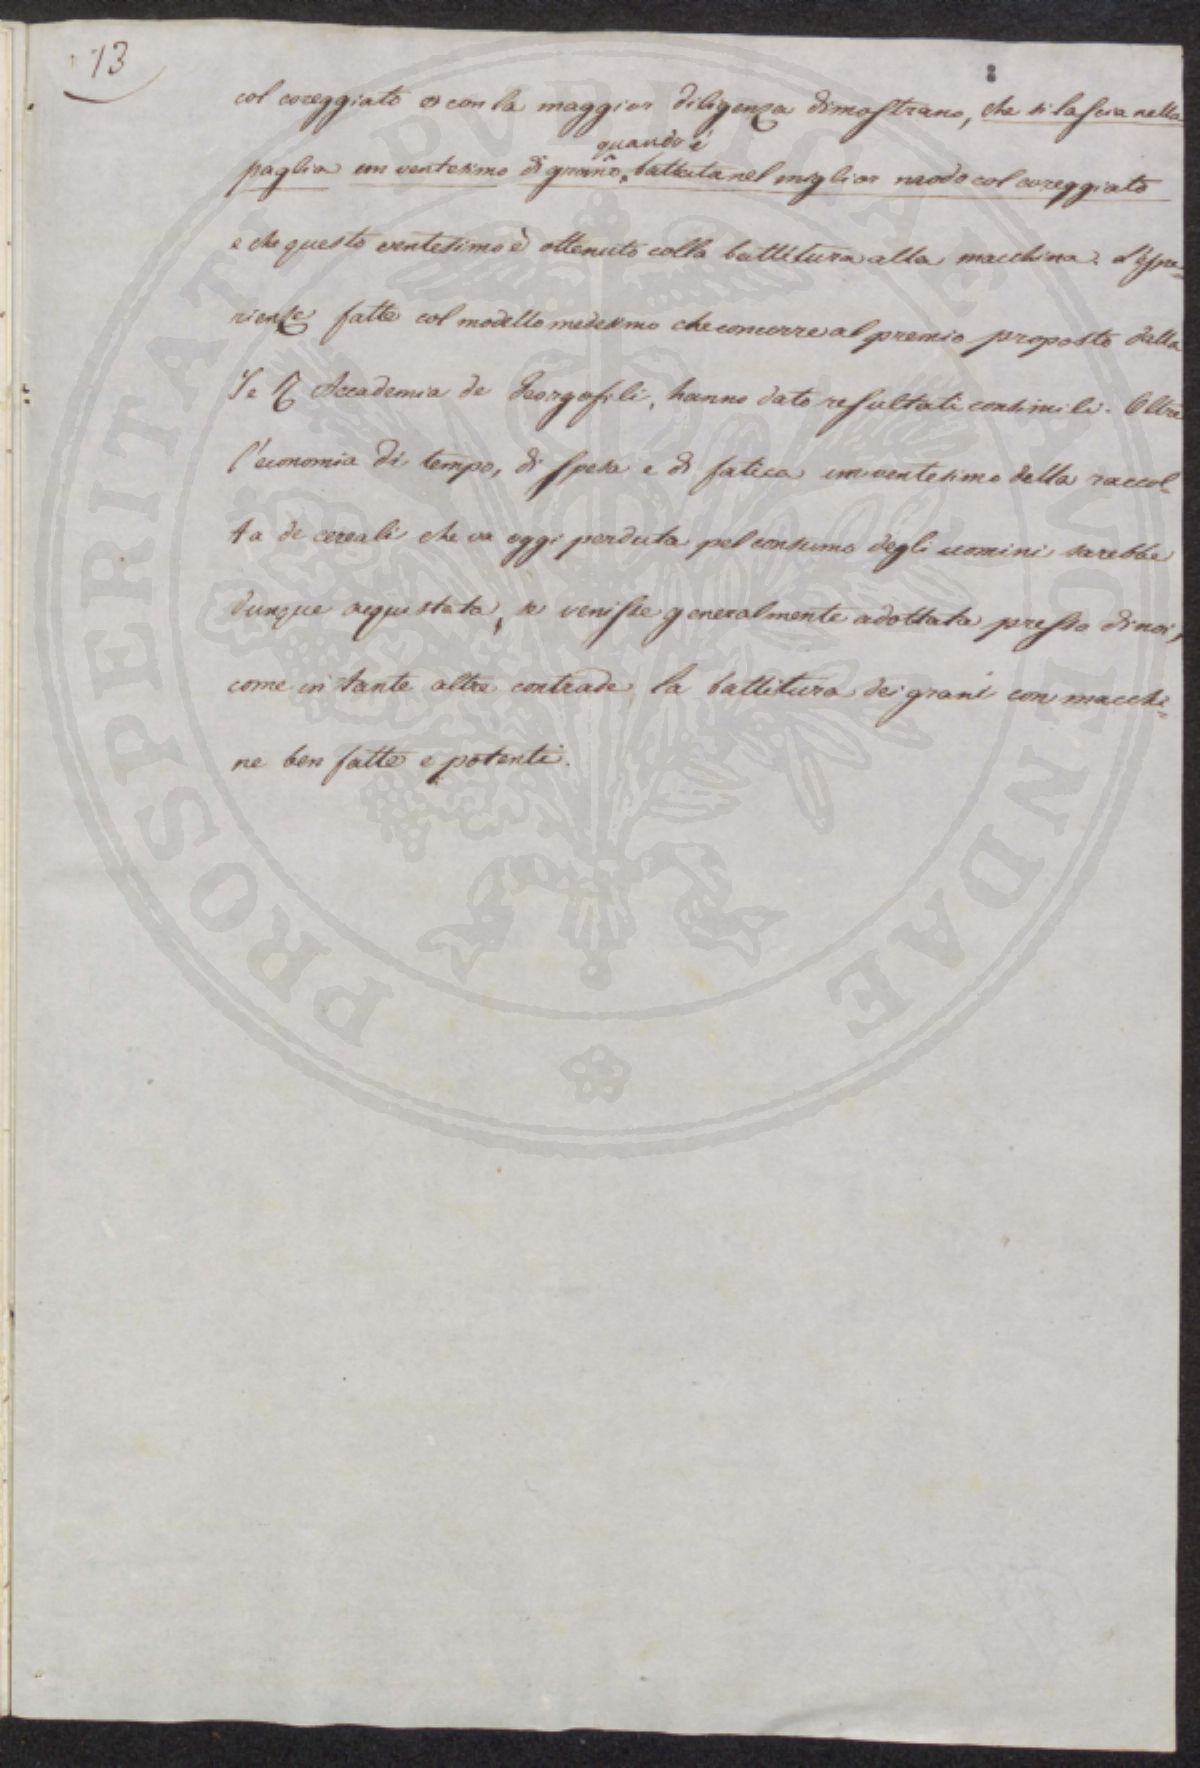 13
col coreggiato e con la maggior diligenza dimostrano, che si lascia nella
quando è
paglia un ventesimo di grano, battuta nel miglior modo col coreggiato
e che questo ventesimo è ottenuto colla battitura alla macchina. L'espe-
rienze fatte col modello medesimo che concorre al premio proposto dalla
I e R Accademia de Georgofili, hanno dato resultati consimili. Oltre
l'economia di tempo, di spesa e di fatica un ventesimo della raccol-
ta de cereali che va oggi perduta pel consumo degli uomini sarebbe
dunque acquistata, se venisse generalmente adottata presso di noi,
come in tante altre contrade, la battitura dei grani con macchi-
ne ben fatte e potenti.
PROSPERITATI PUBLICAE AUGENDAE